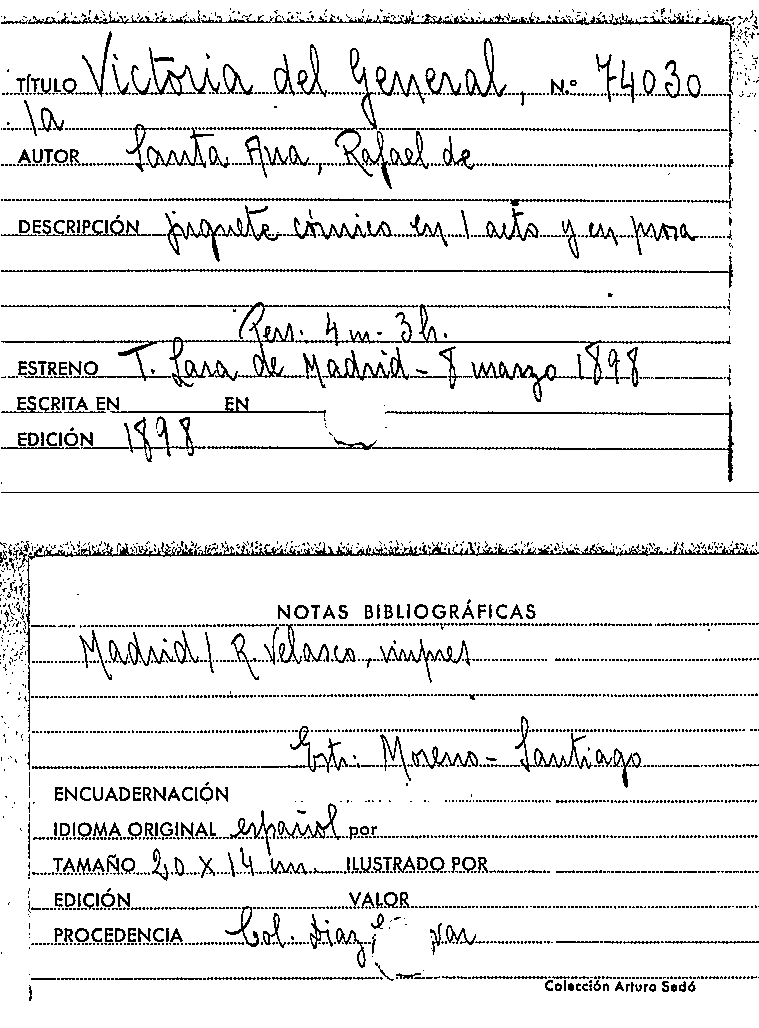 TÍTULO Victoria del General, N.º 74030
la
AUTOR Santa Ana, Rafael de
DESCRIPCIÓN juguete cómico en 1 acto y en prosa
Pers. 4 m. 3 h.
ESTRENO T. Lara de Madrid - 8 marzo 1898
ESCRITA EN EN
EDICIÓN 1898
NOTAS BIBLIOGRÁFICAS
Madrid / R. Velasco, impres
Estr: Moreno - Santiago
ENCUADERNACIÓN
IDIOMA ORIGINAL español por
TAMAÑO 20 X 14 cm. ILUSTRADO POR
EDICIÓN VALOR
PROCEDENCIA Col. Diaz
Colección Arturo Sedó